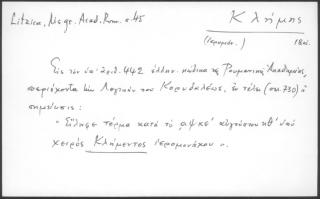 Litzica, Ms. gr. Acad. Rom. σ. 45
Κλήμης
(ιερομόν.) 18ος
Εις τον υπ' αριθ. 442 ελλην. κώδικα της Ρουμανικής Ακαδημίας,
περιέχοντα την Λογικήν του Κορυδαλέως, εν τέλει (σελ. 730) η
σημείωσις:
"Είληφε τέρμα κατά το αψκε' αυγούστου κθ' υπό
χειρός Κλήμεντος ιερομονάχου".